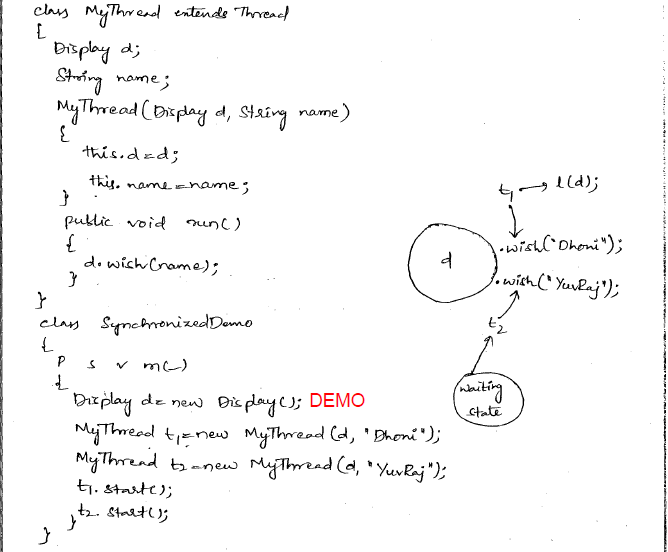 class MyThread extends Thread
{
Display d;
String name;
MyThread(Display d, String name)
{
this.d=d;
this.name=name;
}
public void run()
{
d.wish(name);
}
}
class SynchronizedDemo
{
P s v m(—)
{
Display d= new Display(); DEMO
MyThread t1=new MyThread(d, "Dhoni");
MyThread t2=new MyThread(d, "YuvRaj");
t1.start();
t2.start();
}
}
t1 → l(d);
d
.wish("Dhoni");
.wish("YuvRaj");
t2
waiting
state